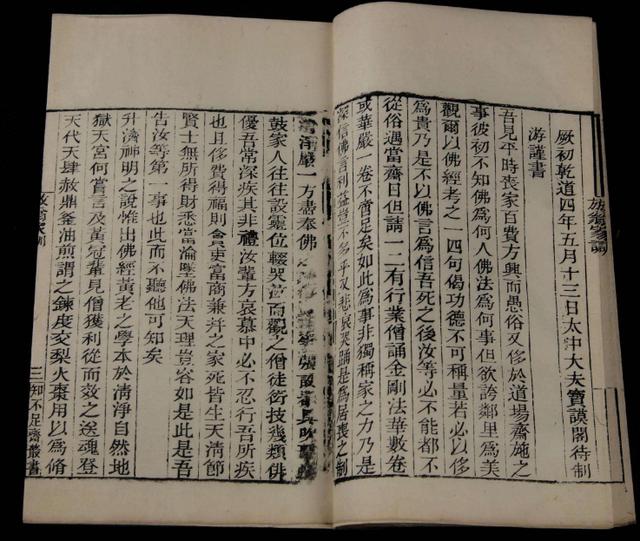 厥初乾道四年五月十三日太中大夫寶謨閣待制
游謹書
吾見平時喪家百費方興而愚俗又侈於道場齋施之
事彼初不知佛為何人佛法為何事但欲誇鄰里為美
觀爾以佛經考之一四句偈功德不可稱量若必以侈
為貴乃是不以佛言為信吾死之後汝等必不能都不
從俗遇當齋日但請一二有行業僧誦金剛法華數卷
或華嚴一卷不啻足矣如此為事非獨稱家之力乃是
深信佛言利益豈不多乎又悲哀哭踊是為居喪之制
清淨嚴一方盡奉佛之
鼓家人往往設靈位輟哭泣而觀之僧徒衒技幾類俳
優吾常深疾其非禮汝輩方哀慕中必不忍行吾所疾
也且侈費得福則貪吏富商兼并之家死皆生天清節
賢士無所得財悉當淪墜佛法天理豈容如是此是吾
告汝等第一事也此而不聽他可知矣
升濟神明之說惟出佛經黃老之學本於清淨自然地
獄天宮何嘗言及黃冠輩見僧獲利從而效之送魂登
天代天肆赦鼎釜油煎謂之鍊度交梨火棗用以為脩
放翁家訓
放翁家訓
三
知不足齋叢書